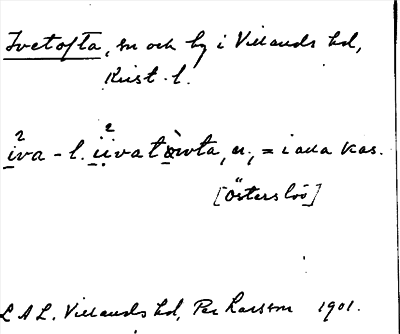 Ivetofta, sn och by i Villands hd,
Krist. l.
iva - l. iivatòwta, n., = i alla kas.
[Österslöv]
L A L. Villands hd, Per Larsson 1901.